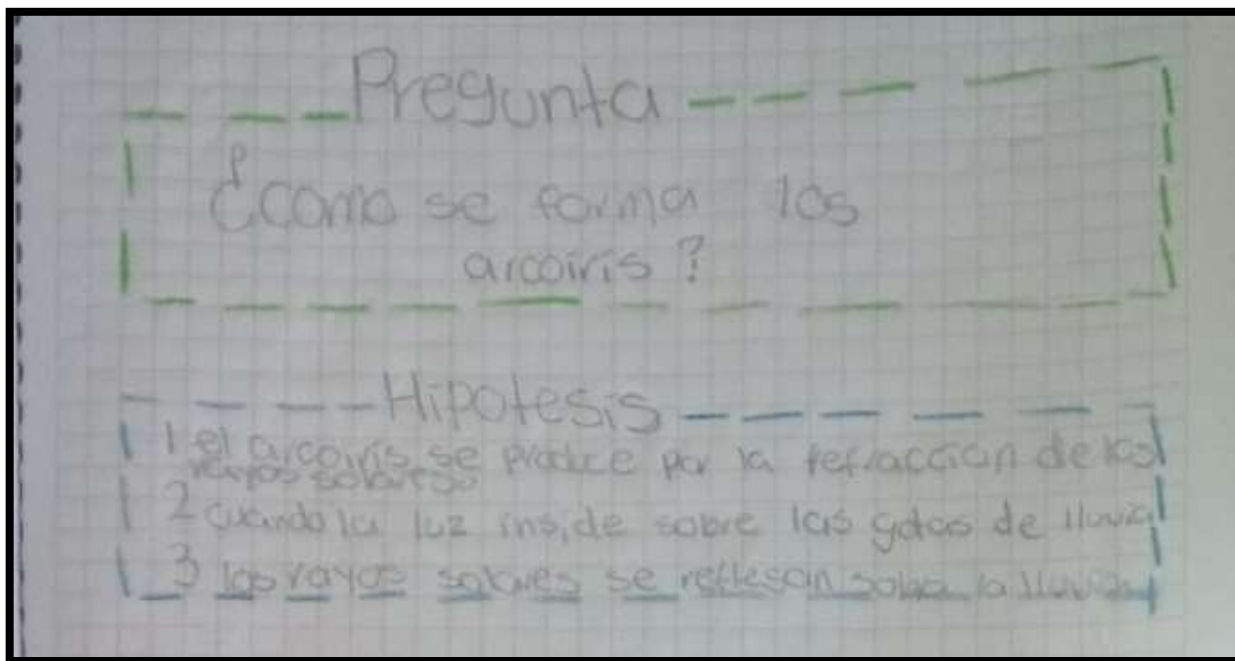 Pregunta
¿como se forma los
arcoiris?
Hipotesis
1 el arcoiris se produce por la refraccion de los
rayos solares
2 cuando la luz inside sobre las gotas de lluvia
3 los rayos solares se reflesan sobre la lluvia